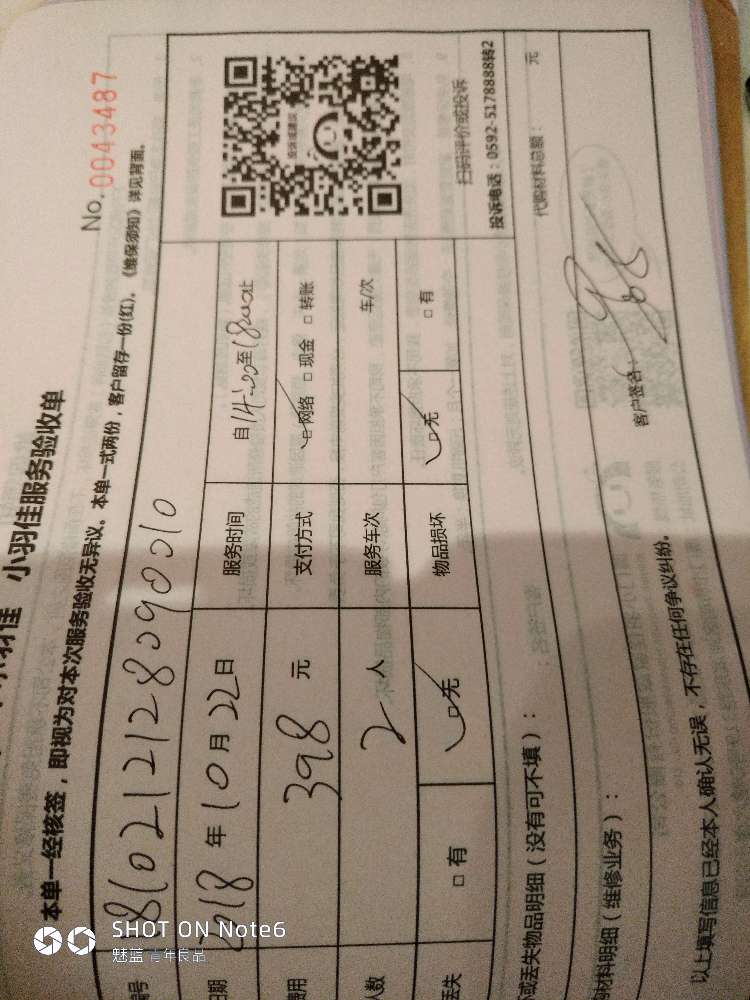 小羽佳 小羽佳服务验收单
No. 0043487
本单一经核签，即视为对本次服务验收无异议。本单一式两份，客户留存一份(红)。《维保须知》详见背面。
编号 8102121280900010
日期 2018年10月22日 服务时间 自14:00至18:00止
费用 398元 支付方式 □网络 □现金 □转账
人数 2人 服务车次 车/次
丢失 □有 □无 物品损坏 □无 □有
扫码评价或投诉
投诉电话：0592-5178888转2
或丢失物品明细（没有可不填）：
材料明细（维修业务）： 代购材料总额： 元
以上填写信息已经本人确认无误，不存在任何争议纠纷。 客户签名：
SHOT ON Note6
魅蓝 青年良品